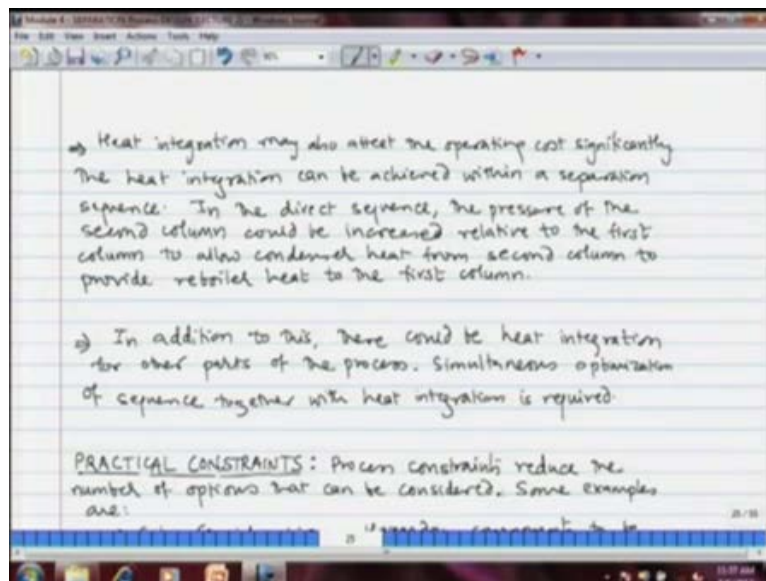 Module 4 - SEPARATION Process DESIGN LECTURE - Windows Journal
File Edit View Insert Actions Tools Help
⇒ Heat integration may also affect the operating cost significantly
The heat integration can be achieved within a separation
sequence. In the direct sequence, the pressure of the
second column could be increased relative to the first
column to allow condenser heat from second column to
provide reboiler heat to the first column.
⇒ In addition to this, there could be heat integration
for other parts of the process. Simultaneous optimization
of sequence together with heat integration is required.
PRACTICAL CONSTRAINTS: Process constraints reduce the
number of options that can be considered. Some examples
are:
component to be
25
11:37 AM